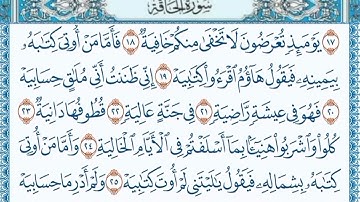 سُورَةُ الحَاقَّةِ
١٧ يَوْمَئِذٍ تُعْرَضُونَ لَا تَخْفَىٰ مِنكُمْ خَافِيَةٌ ١٨ فَأَمَّا مَنْ أُوتِيَ كِتَٰبَهُۥ
بِيَمِينِهِۦ فَيَقُولُ هَآؤُمُ ٱقْرَءُوا۟ كِتَٰبِيَهْ ١٩ إِنِّي ظَنَنتُ أَنِّي مُلَٰقٍ حِسَابِيَهْ
٢٠ فَهُوَ فِي عِيشَةٍ رَّاضِيَةٍ ٢١ فِي جَنَّةٍ عَالِيَةٍ ٢٢ قُطُوفُهَا دَانِيَةٌ ٢٣
كُلُوا۟ وَٱشْرَبُوا۟ هَنِيٓـًٔۢا بِمَآ أَسْلَفْتُمْ فِي ٱلْأَيَّامِ ٱلْخَالِيَةِ ٢٤ وَأَمَّا مَنْ أُوتِيَ
كِتَٰبَهُۥ بِشِمَالِهِۦ فَيَقُولُ يَٰلَيْتَنِي لَمْ أُوتَ كِتَٰبِيَهْ ٢٥ وَلَمْ أَدْرِ مَا حِسَابِيَهْ